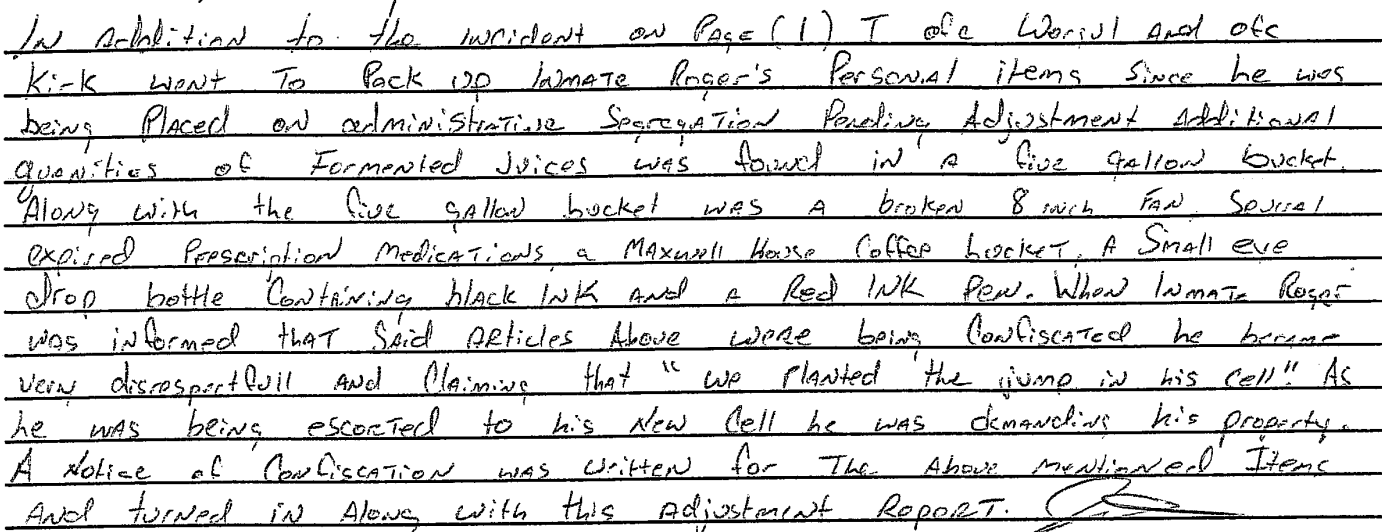 In Addition to the incident on Page (1) I ofc and ofc
Kirk went To Pack up Inmate Roger's Personal items Since he was
being Placed on administrative Segregation Pending Adjustment Additional
quanities of Formented Juices was found in a five gallon bucket.
Along with the five gallon bucket was A broken 8 inch FAN, Several
expired Prescription Medications, a Maxwell House Coffee bucket, A Small eye
drop bottle Containing black INK and a Red INK Pen. When Inmate Roger
was informed that Said Articles Above were being Confiscated he became
very disrespectfull and Claiming that " we planted the in his cell". As
he was being escorted to his New Cell he was demanding his property.
A Notice of Confiscation was written for The Above mentionned Items
And turned in Along with this Adjustment Report.